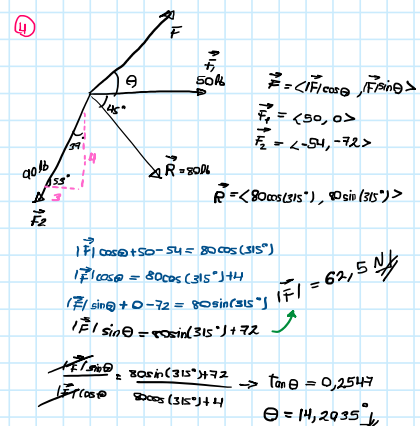 4
F⃗
θ
F⃗₁
50lb
45°
37
4
90lb
53°
3
F⃗₂
R⃗=80lb
F⃗ = <|F⃗|cosθ, |F⃗|sinθ>
F⃗₁ = <50, 0>
F⃗₂ = <-54, -72>
R⃗ = <80cos(315°), 80sin(315°)>
|F⃗|cosθ+50-54 = 80cos(315°)
|F⃗|cosθ = 80cos(315°)+4
|F⃗|sinθ + 0-72 = 80sin(315°)
|F⃗|sinθ = 80sin(315°)+72
|F⃗| = 62,5 N
|F⃗|sinθ / |F⃗|cosθ = 80sin(315°)+72 / 80cos(315°)+4 → tanθ = 0,2547
θ = 14,2935°